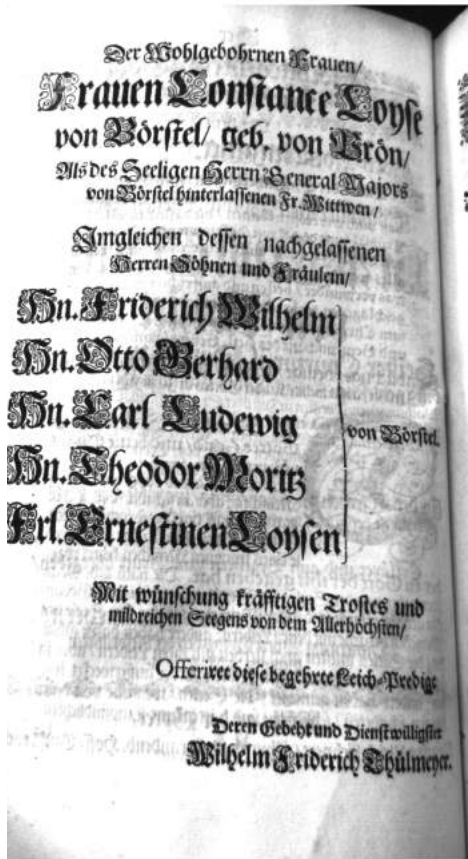 Der Wohlgebohrnen Frauen/
Frauen Constance Loyse
von Börstel/ geb. von Brön/
Als des Seeligen Herrn General Majors
von Börstel hinterlassenen Fr. Wittwen/
Imgleichen dessen nachgelassenen
Herren Söhnen und Fräulein/
Hn. Friderich Wilhelm
Hn. Otto Gerhard
Hn. Carl Ludewig
von Börstel.
Hn. Theodor Moritz
Frl. Ernestinen Loysen
Mit wünschung kräfftigen Trostes und
mildreichen Seegens von dem Allerhöchsten/
Offeriret diese begehrte Leich-Predigt
Deren Gebeht und Dienstwilligster
Wilhelm Friderich Thülmeyer.